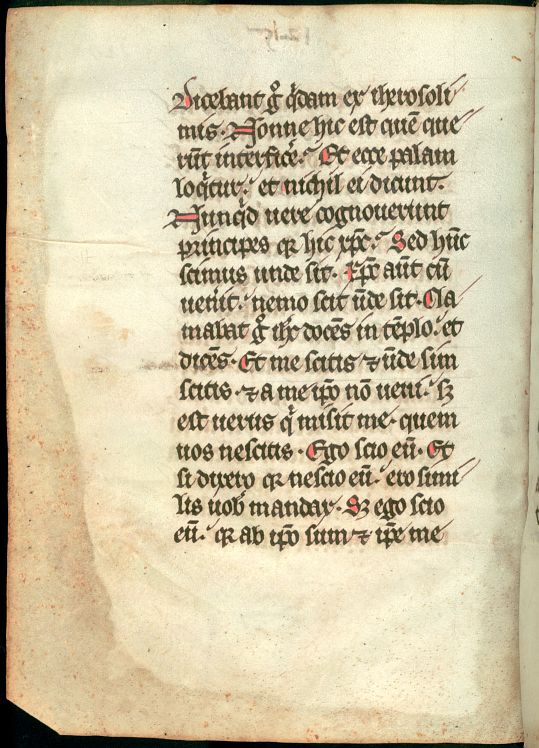 Dicebant gͦ qͥdam ex iherosoli
mis. Nonne hic est quē que
rūt interficeˀ. Et ecce palam
loqͥtur. et nichil ei dicunt.
Nunqͥd uere cognouerunt
principes qꝛ hic xp̄c. Sed hūc
scimus unde sit. xp̄c aūt cū
uenˀit. nemo scit ūde sit. Cla
mabat gͦ ih̄c docēs in tēplo. et
dicēs. Et me scitis ⁊ ūde sim
scitis. ⁊ a me ip̄o nō ueni. sꝫ
est uerus qͥ misit me. quem
uos nescitis. Ego scio eū. Et
si dixero qꝛ nescio eū. ero simi
lis uob̄ mandax. Sꝫ ego scio
eū. qꝛ ab ip̄o sum ⁊ ip̄e me